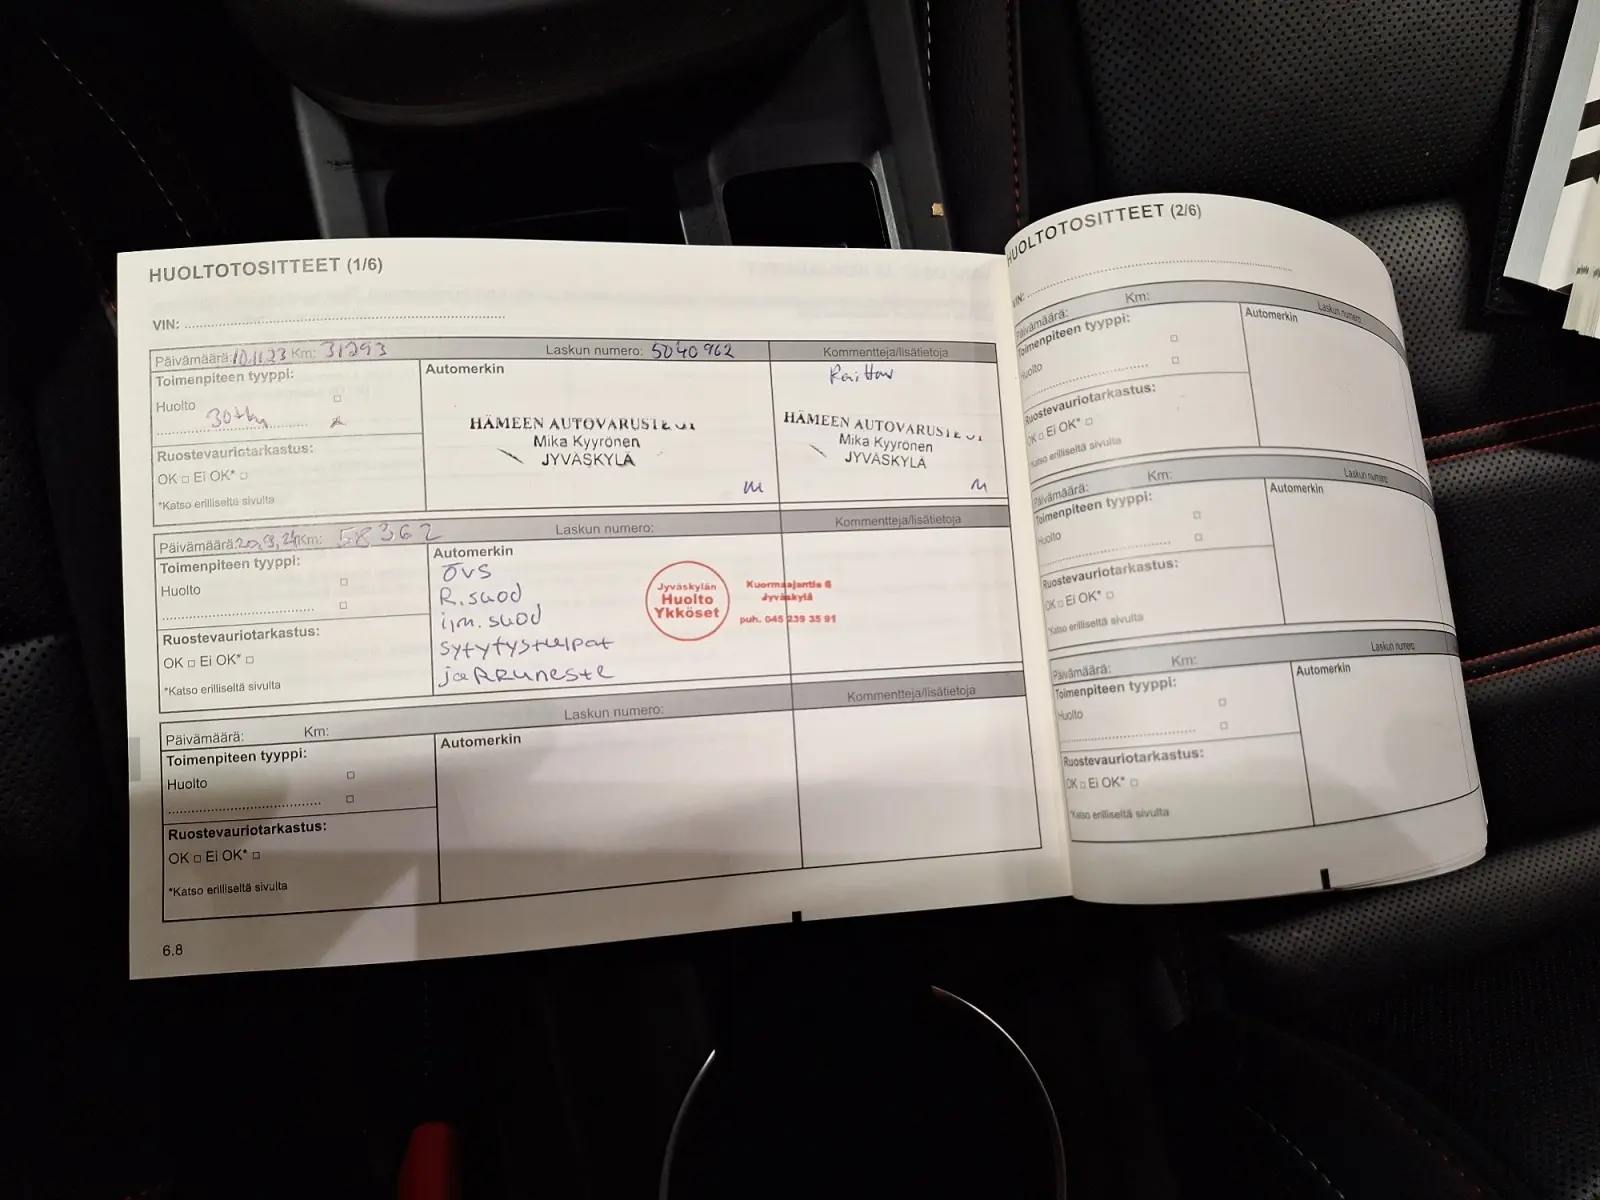 HUOLTOTOSITTEET (1/6)
VIN:
Päivämäärä: 10.11.23 Km: 31293 Laskun numero: 5040962 Kommentteja/lisätietoja
Toimenpiteen tyyppi:
Huolto
30tkm
Ruostevauriotarkastus:
OK □ Ei OK* □
*Katso erilliseltä sivulta
Automerkin
HÄMEEN AUTOVARUSTE
Mika Kyyrönen
JYVÄSKYLÄ
HÄMEEN AUTOVARUSTE
Mika Kyyrönen
JYVÄSKYLÄ
Päivämäärä: 20.9.24 Km: 58362 Laskun numero: Kommentteja/lisätietoja
Toimenpiteen tyyppi:
Huolto
Ruostevauriotarkastus:
OK □ Ei OK* □
*Katso erilliseltä sivulta
Automerkin
ÖVS
R.suod
i,m. suod
sytytystulpat
jarruneste
Jyväskylän
Huolto
Ykköset
Kuormaajantie 6
Jyväskylä
puh. 045 239 35 91
Päivämäärä: Km: Laskun numero: Kommentteja/lisätietoja
Toimenpiteen tyyppi:
Huolto
Ruostevauriotarkastus:
OK □ Ei OK* □
*Katso erilliseltä sivulta
Automerkin
6.8
HUOLTOTOSITTEET (2/6)
VIN:
Päivämäärä: Km: Laskun numero
Toimenpiteen tyyppi:
Huolto
Ruostevauriotarkastus:
OK □ Ei OK* □
*Katso erilliseltä sivulta
Automerkin
Päivämäärä: Km: Laskun numero
Toimenpiteen tyyppi:
Huolto
Ruostevauriotarkastus:
OK □ Ei OK* □
*Katso erilliseltä sivulta
Automerkin
Päivämäärä: Km: Laskun numero
Toimenpiteen tyyppi:
Huolto
Ruostevauriotarkastus:
OK □ Ei OK* □
*Katso erilliseltä sivulta
Automerkin